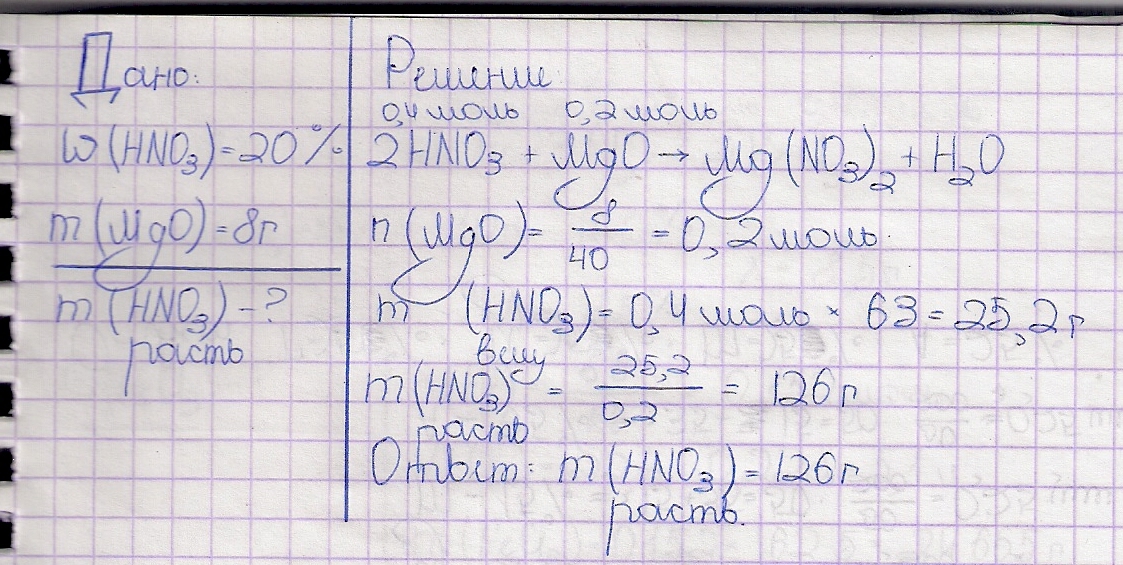 Дано:
ω(HNO₃)=20%
m(MgO)=8г
m(HNO₃)-?
раств
Решение
0,4моль 0,2моль
2HNO₃ + MgO → Mg(NO₃)₂ + H₂O
n(MgO)= 8/40 = 0,2моль
m (HNO₃)= 0,4моль × 63 = 25,2г
вещ
m(HNO₃) = 25,2/0,2 = 126г
раств
Ответ: m(HNO₃)=126г
раств.